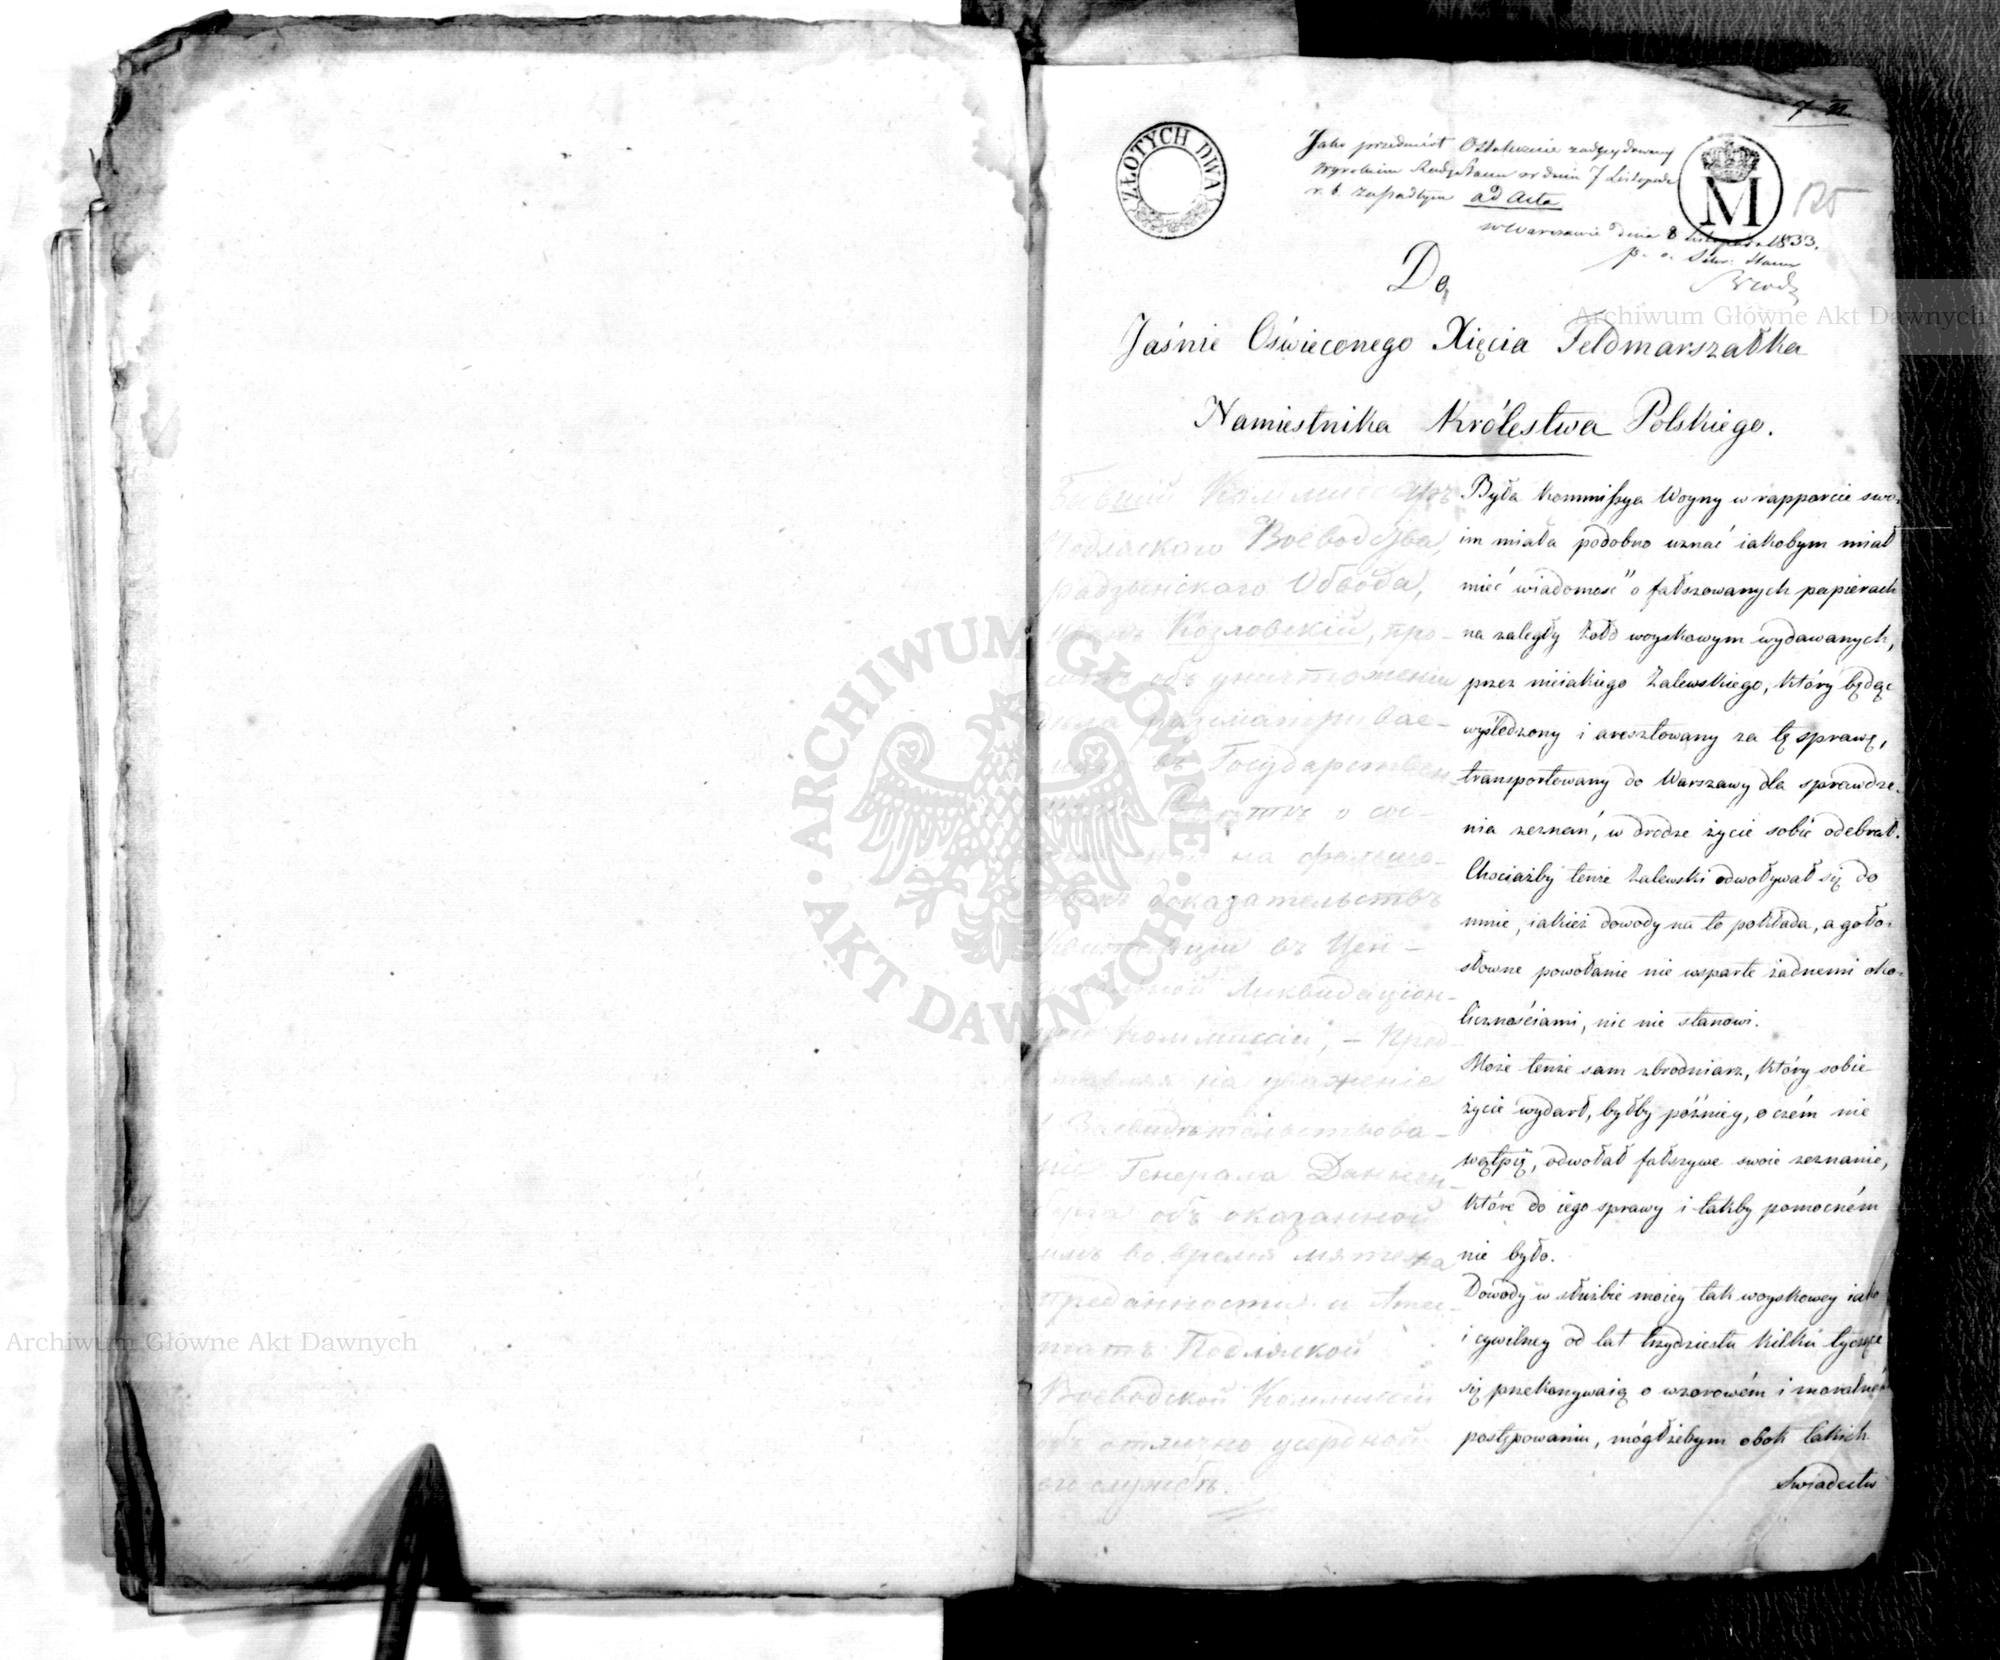 ZŁOTYCH DWA
Jako przedmiót Ostatecznie zadecydowany
Wyrokiem Rady Stanu w dniu 7 Listopada
r. b. zapadłym ad Acta
w Warszawie dnia 8 Listopada 1833.
p. o. Sekr. Stanu
M
125
Do,
Jaśnie Oświeconego Xięcia Feldmarszałka
Namiestnika Królestwa Polskiego.
Бывший Коммиссаръ
Подляскаго Воеводства,
радзынскаго Обвода,
Козловскій, про-
ситъ объ уничтоженіи
дѣла разсматривае-
маго въ Государствен-
о сос-
на фальшо-
доказательствъ
въ Цен-
Ликвидаціон-
ной Коммиссіи, – Пред-
ставляя на уваженіе
Засвидѣтельствова-
ніе Генерала Даннен-
берга объ оказанной
имъ во время мятежа
преданности и Аттес-
татъ Подляской
Воеводской Коммиссіи
объ отлично усердной
его службѣ.
Była Kommissya Woyny w rapporcie swo-
im miała podobno uznać iakobym miał
mieć wiadomość o fałszowanych papierach
na zaległy żołd woyskowym wydawanych,
przez nieiakiego Zalewskiego, który będąc
wyśledzony i aresztowany za tę sprawę,
transportowany do Warszawy dla sprawdze-
nia zeznań, w drodze życie sobie odebrał.
Chociażby tenże Zalewski odwoływał się do
mnie, iakież dowody na to pokłada, a goło-
słowne powołanie nie wsparte żadnemi oko-
licznościami, nic nie stanowi.
Może tenże sam zbrodniarz, który sobie
życie wydarł, byłby pózniey, o czém nie
wątpię, odwołał fałszywe swoie zeznanie,
które do iego sprawy i takby pomocném
nie było.
Dowody w służbie moiey tak woyskowey iako
i cywilney od lat trzydziestu kilku tyczące
się przekonywaią o wzorowém i moralném
postępowaniu, mógłżebym obok takich
świadectw
Archiwum Główne Akt Dawnych
Archiwum Główne Akt Dawnych
ARCHIWUM GŁÓWNE • AKT DAWNYCH •